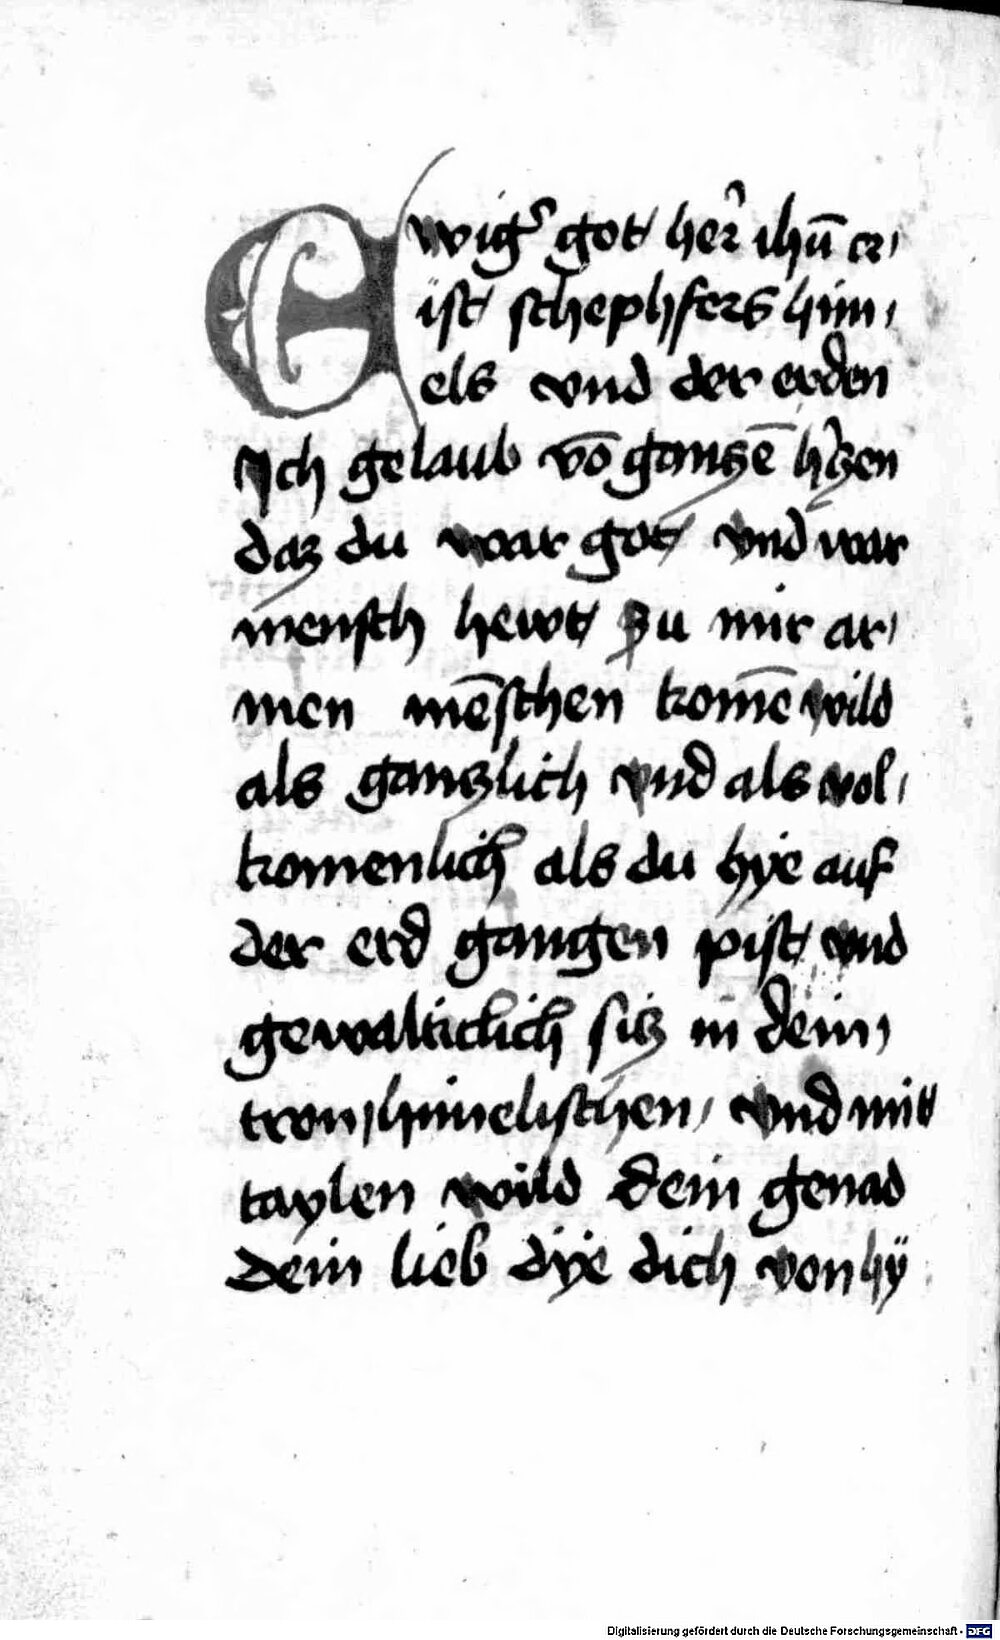 Ewig͛ got her̄ ihū cr⸗
ist schephfers him⸗
els vnd der erden
Ich gelaub vō ganczē hr̄czen
daz du war got vnd war
mensch hewt zu mir ar⸗
men mēschen komē wild
als ganczlich vnd als vol⸗
komenlich als du hye auf
der erd gangen pist vnd
gewalticlich sicz in dein⸗
tron himelischen, vnd mit
taylen wild dein genad
dein lieb dÿe dich von hÿ
Digitalisierung gefördert durch die Deutsche Forschungsgemeinschaft - DFG